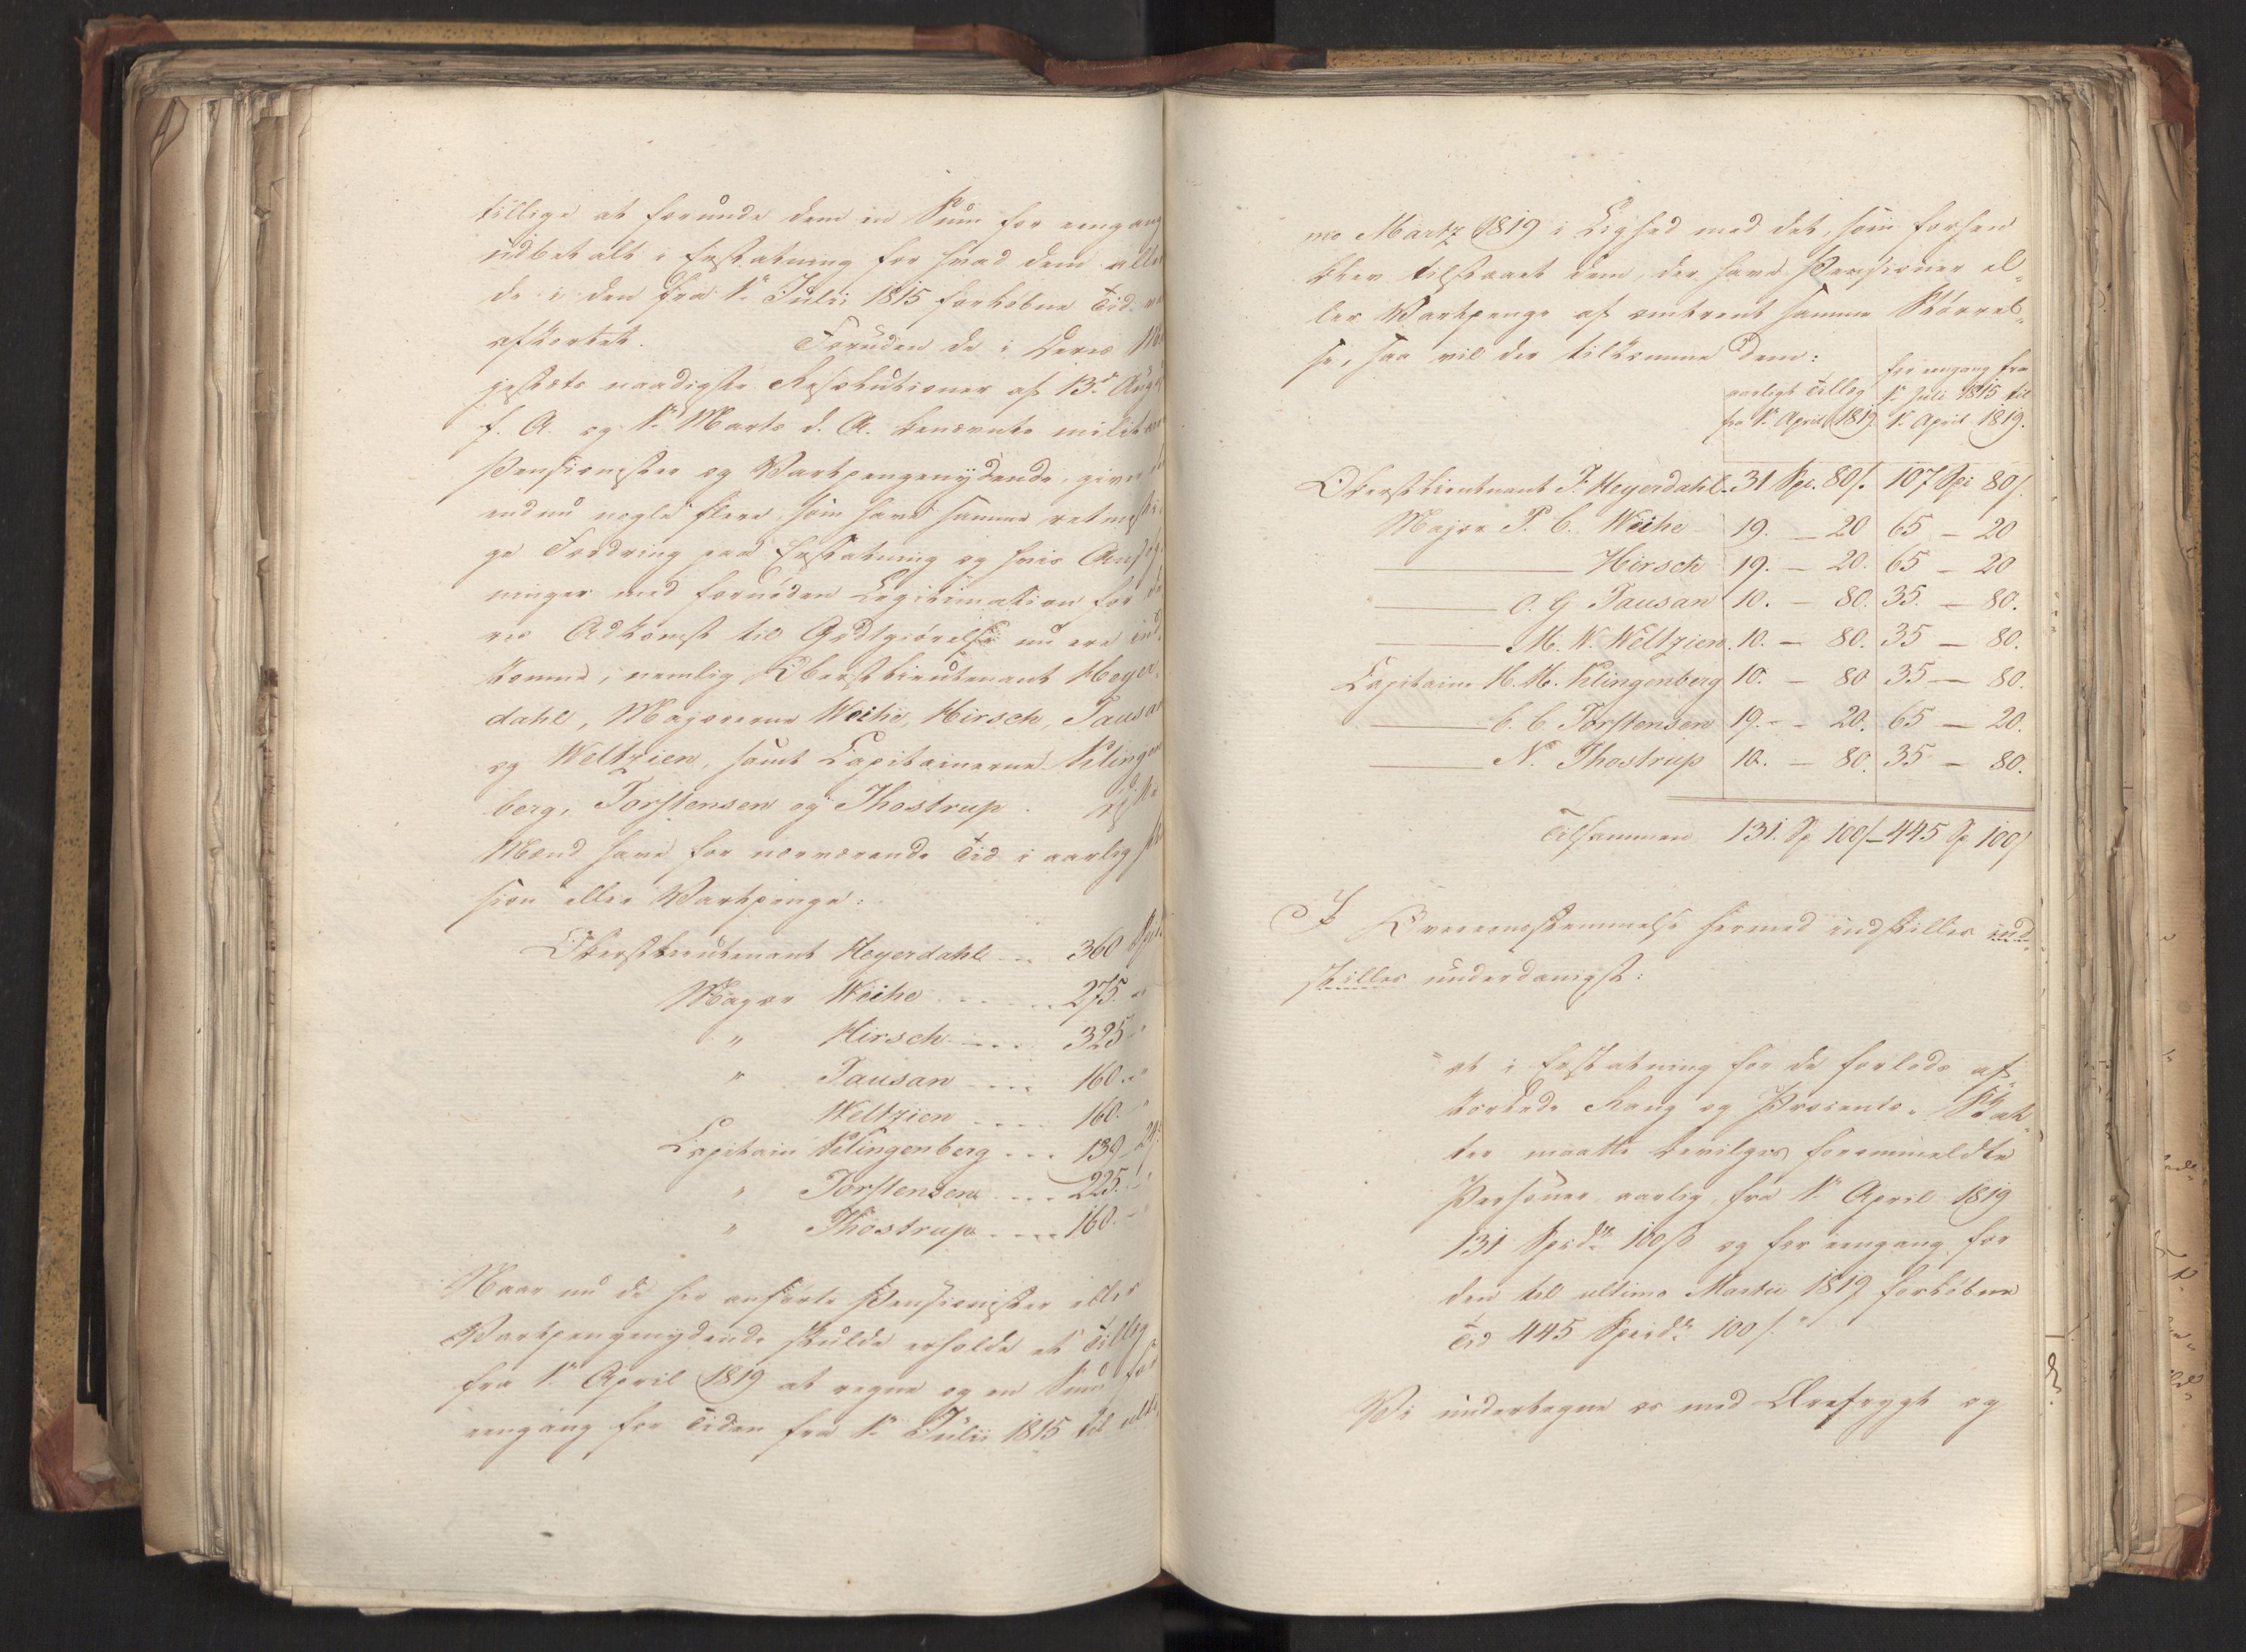 tillige at forunde dem en Sum for eengang
udbetalt i Erstatning for hvad dem alle
de i den fra 1ste Julii 1815 forløbne Tid
afkortet. Foruden de i Deres Ma
jestæts naadigste Resolutioner af 13de Aug
f. A. og 1ste Marts d. A. benævnte militære
Pensionister og Vartpengenydende, gives
endnu nogle flere, som have samme retmæssi
ge Fordring paa Erstatning og hvis Ansøg
ninger med fornøden Legitimation for de
res Adkomst til Godtgiørelse nu ere ind
komne, nemlig Oberstlieutenant Heyer
dahl, Majorerne Weihe, Hirsch, Tausan
og Weltzien, samt Capitainerne Klingen
berg, Torstensen og Thostrup.
Mænd have for nærværende Tid i aarlig
sion eller Vartpenge:
Oberstlieutenant Heyerdahl 360
Major Weihe 275.
" Hirsch 325
" Tausan 160.
Weltzien 160.
Capitain Klingenberg 139 24
" Torstensen 225.
" Thostrup 160.
Naar nu de her anførte Pensionister eller
Vartpengenydende skulde erholde et Tillæg
fra 1ste April 1819 at regne og en Sum for
eengang for Tiden fra 1ste Julii 1815 til ulti
mo Martz 1819 i Lighed med det, som forhen
blev tilstaaet dem, der have Pensioner el
ler Vartpenge af omtrent samme Størrel
se, saa vil der tilkomme dem:
aarligt Tillæg fra 1ste April 1819.
for eengang fra 1ste Juli 1815 til 1ste April 1819.
Oberstlieutenant F. Heyerdahl 31 Spe. 80 s. 107 Spe 80 s.
Major P. C. Weihe 19. – 20 65 – 20
Hirsch 19. – 20. 65 – 20
O. G Tausan 10. – 80. 35. – 80.
M. W. Weltzien 10. – 80. 35 – 80.
Capitain H. H. Klingenberg 10. – 80 35 – 80.
C. C Torstensen 19. – 20. 65 – 20.
N. Thostrup 10. – 80. 35 – 80.
Tilsammen 131. Sp 100 s – 445 Sp 100 s
I Overeensstemmelse hermed indstilles ind
stilles underdanigst:
"at i Erstatning for de forlods af
kortede Rang og Procents Skat
ter maatte bevilges forommeldte
Personer aarlig, fra 1ste April 1819
131 Spdr 100 s og for eengang for
den til ultimo Martii 1819 forløbne
Tid 445 Speidr 100 s."
Vi undertegne os med Ærefrygt og